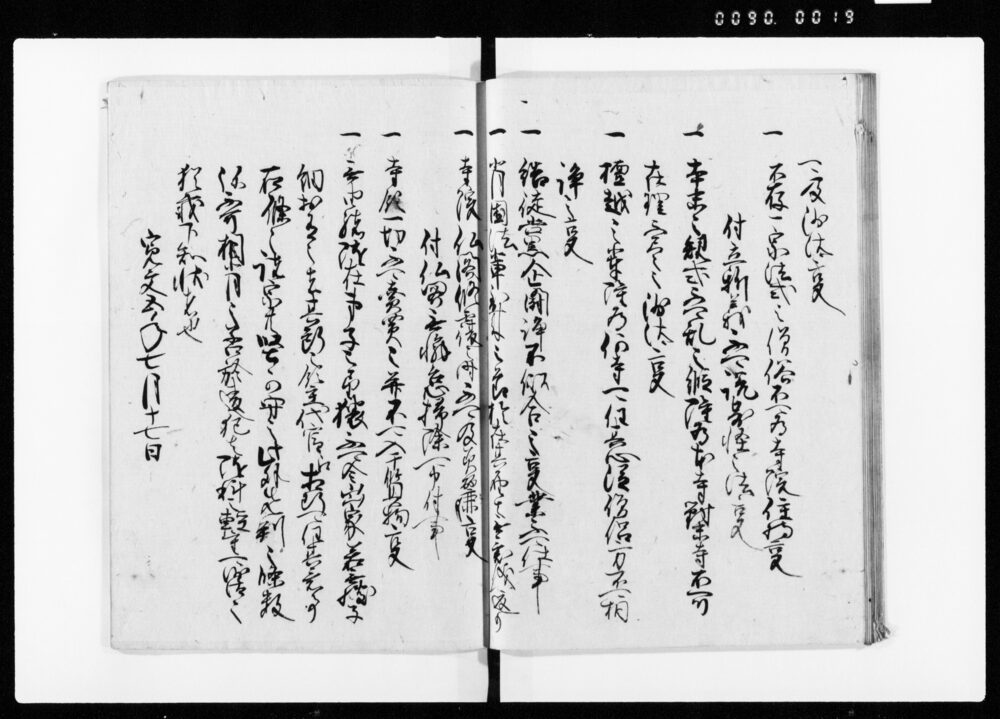 急度沙汰事
一 不存一宗法式之僧俗不可為寺院住持事
付立新義不可説奇怪之法事
一 本末之規式不可乱之縦雖為本寺對末寺不可
有理不尽之沙汰事
一 檀越之輩雖為何寺可任心従僧侶方不可相
諍之事
一 結徒黨企闘諍不似合之事業不可仕事
一 背國法輩到来之節於在其届者無異儀返可
一 寺院仏閣修覆之時不可及美麗事
付仏閣無懈怠掃除可申付事
一 寺領一切不可賣買之并不可入于質物事
一 無由緒雖在弟子之望猥不可令出家若無拠子
細於有之者其所之領主代官江相断可任其意事
右條々諸宗共堅可守之此外先判之條数
弥不可相背之若於違犯者随科軽重可沙汰之
猶載下知状者也
寛文五年七月十七日
0090.0019